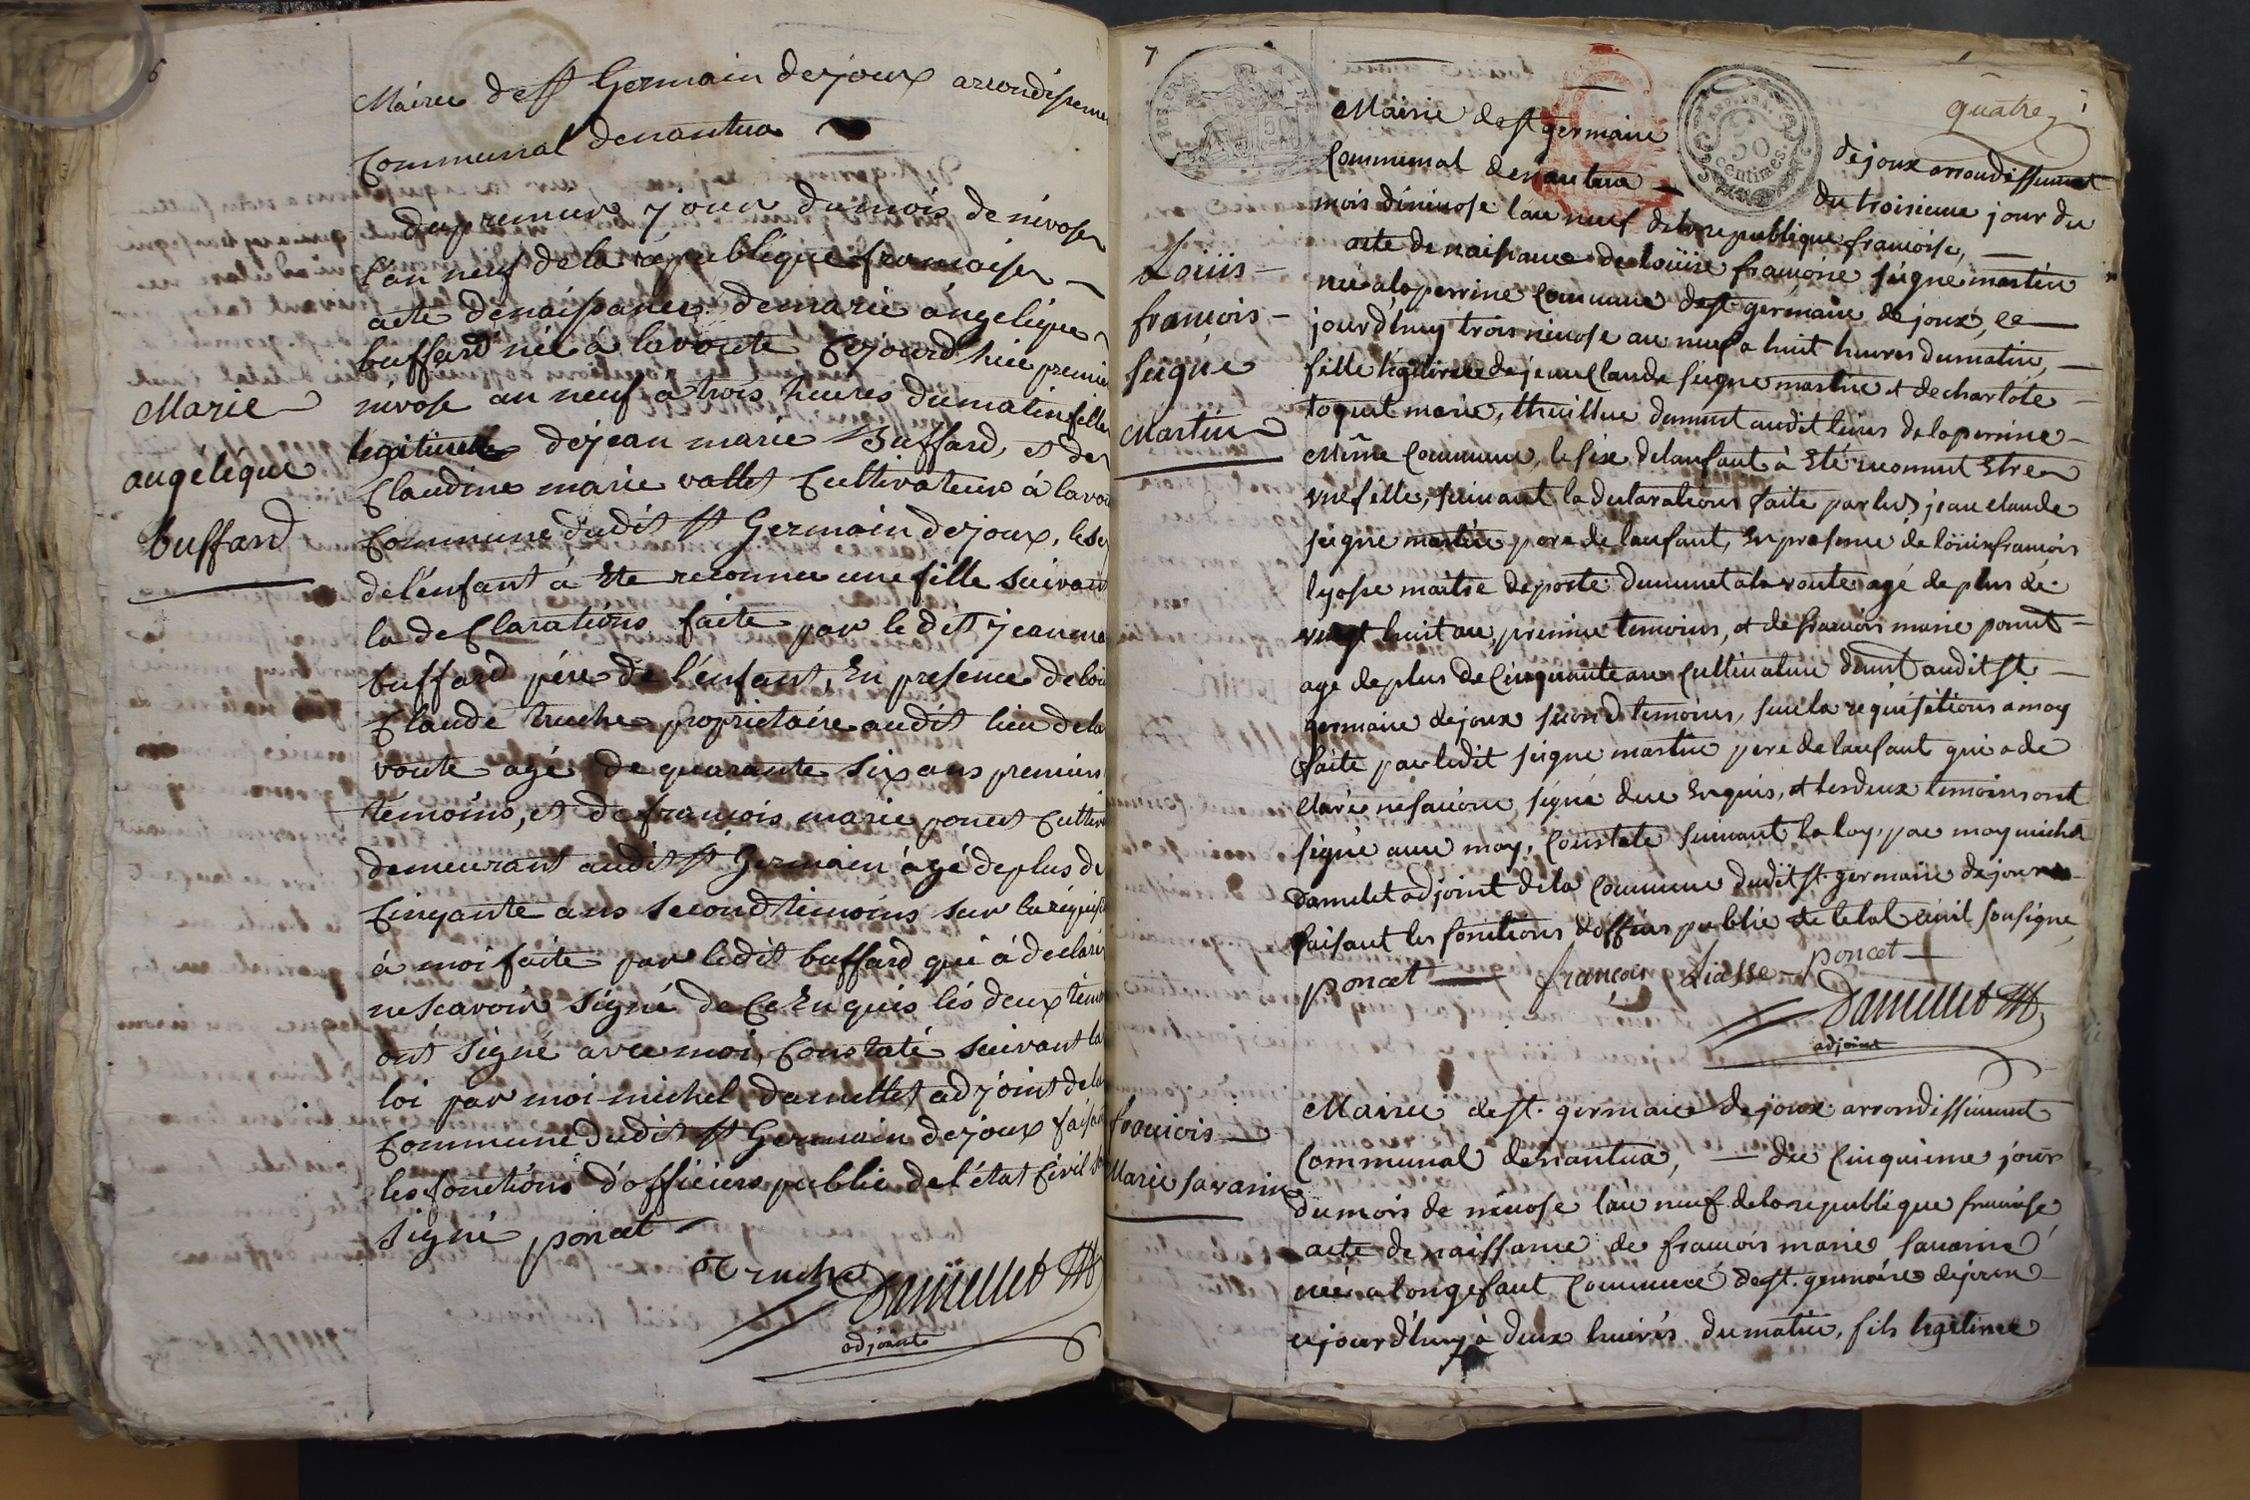 6
Mairie de St Germain dejoux arrondissemen
Communal denantua
dupremier jour dumois de nivose
l'an neuf de la république francoise
acte denaissance demarie angelique
buffard née à lavoute Cejourd'hui premier
nivose an neuf à trois heures dumatin fille
legitime dejean marie Buffard, et de
Claudine marie vallet Cultivateur à lavou
Commune dudit St Germain dejoux, lese
del'enfant à Ete reconnu une fille suivant
la deClarations faite par le dit jean ma
buffard père de l'enfant, En presence de
Claude truche propriétaire audit lieu dela
voute agé de quarante six ans premier
témoins, et de françois marie poncet Cultiv
demeurant audit St Germain agé deplus de
Cinqante ans second témoins sur la réquisi
à moi faite par ledit buffard qui à declaré
nescavoir signé de Ce Enquis les deux témo
ont signé avec moi, Constaté suivant la
loi par moi michel damillet adjoint dela
Commune dudit St Germain dejoux faisa
les fonctions d'officiers public de l'état Civil
signé poncet
Truche Damillet
adjoint
Marie
angélique
buffard
7
50
centimes
quatre
Mairie de st germain dejoux arrondissement
Communal denantua du troisieme jour du
mois denivose lan neuf delarepublique francoise,
acte de naissance de loüise francoise seigne martin
née alaperrine Commune de st germain dejoux, ce
jourd'huy trois nivose an neuf a huit heures dumatin,
fille legitime dejean Claude seigne martin et decharlote
toquet marie, thuillier demurt audit lieus delaperrine
Même Commune, le sexe delanfant à Eté reconnut Etre
une fille, suivant la declarations faite par led jean claude
seigne martin pere de lanfant, En presence de loüis francois
lyasse maitre deposte demeurt ala voute agé de plus de
vingt huit ans, premier temoins, et de francois marie poncet
age deplus de Cinquante ans Cultivateur demt audit st
germain dejoux second temoins, sur la requisitions a moy
faite par ledit seigne martin pere de lanfant qui a de
claré ne savoir signé de ce Enquis, et les deux temoins ont
signé avec moy, Constaté suivant la loy, par moy michel
damillet adjoint dela Commune dudit st germain dejoux
faisant les fonctions d'offisier public de letat civil sousigne
poncet françois Liasse poncet
Damillet
adjoint
Loüis
francois
seigne
Martin
Mairie de st. germain dejoux arrondissiment
Communal denantua, du Cinquieme jour
du mois de nivose lan neuf delarepublique francoise
acte de naissance de francois marie savarin
né a longefant Commune de st. germain dejoux
cejourd'huy à deux heures dumatin, fils legitime
francois
Marie savarin